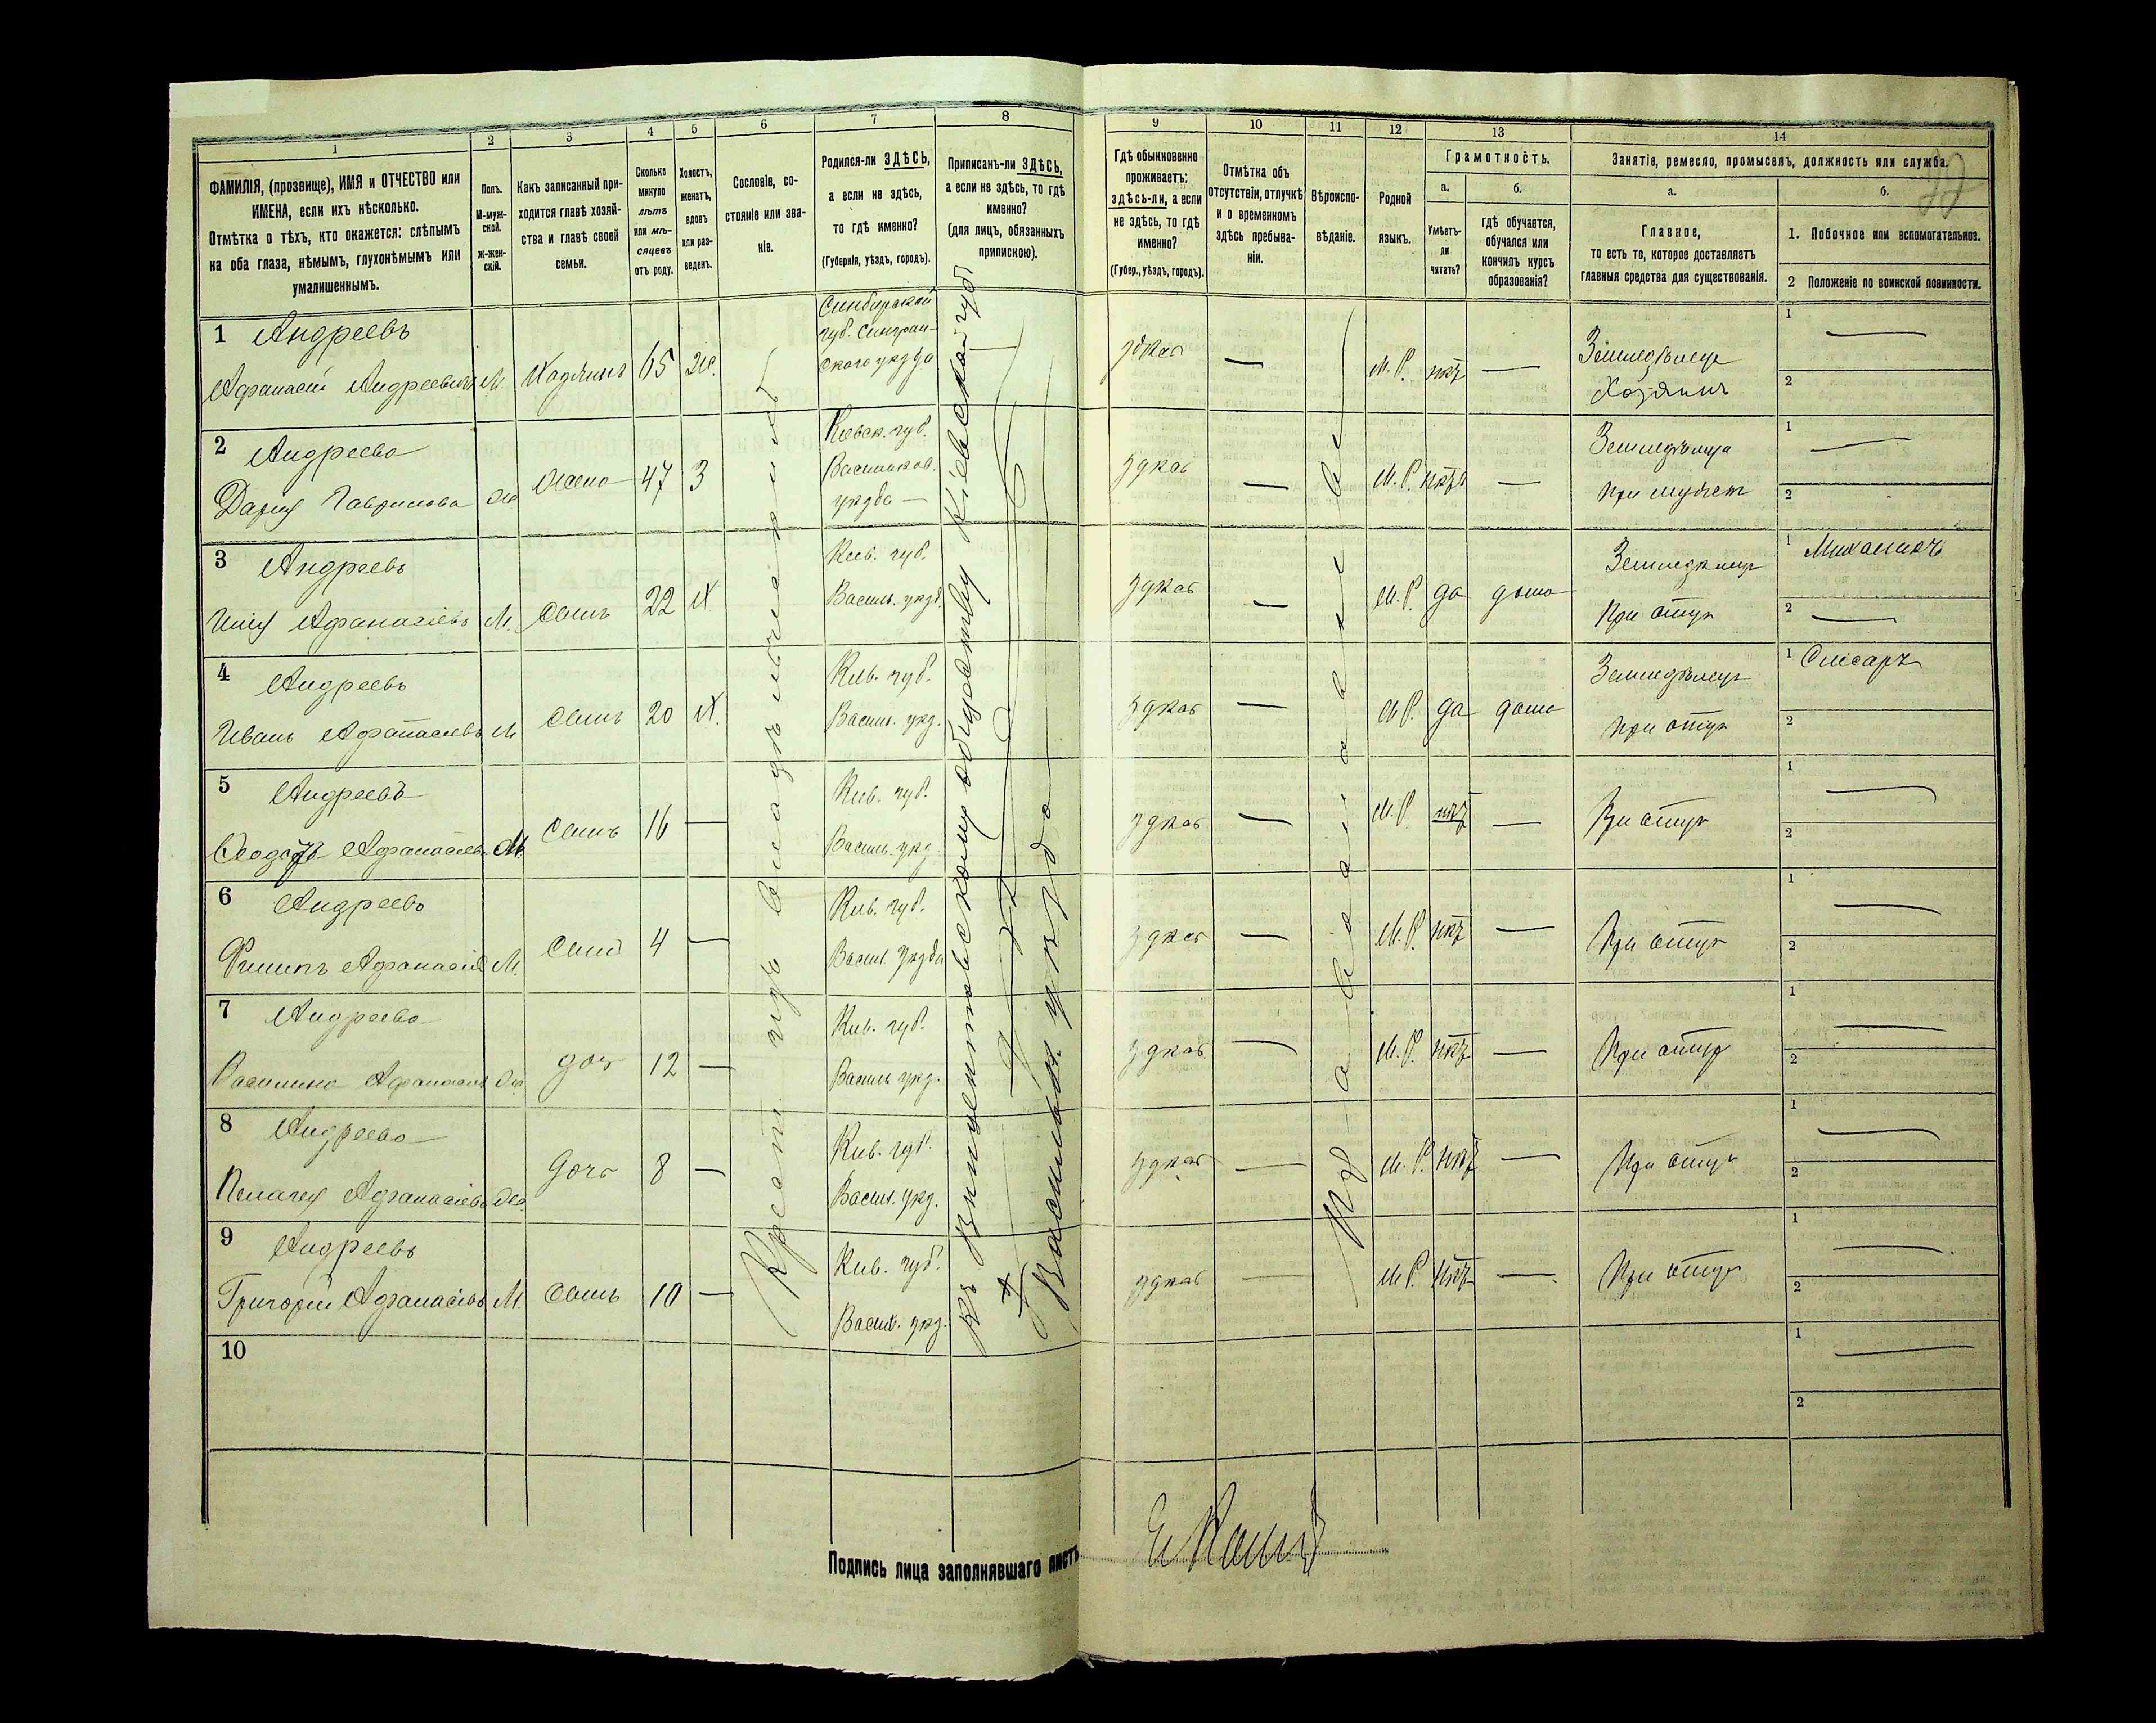 1
2
3
4
5
6
7
8
9
10
11
12
13
14
ФАМИЛІЯ, (прозвище), ИМЯ и ОТЧЕСТВО или
ИМЕНА, если ихъ нѣсколько.
Отмѣтка о тѣхъ, кто окажется: слѣпымъ
на оба глаза, нѣмымъ, глухонѣмымъ или
умалишеннымъ.
Полъ.
М-муж-
ской.
ж-жен-
скій.
Какъ записанный при-
ходится главѣ хозяй-
ства и главѣ своей
семьи.
Сколько
минуло
лѣтъ
или мѣ-
сяцевъ
отъ роду.
Холостъ,
женатъ,
вдовъ
или раз-
веденъ.
Сословіе, со-
стояніе или зва-
ніе.
Родился-ли ЗДѢСЬ,
а если не здѣсь,
то гдѣ именно?
(Губернія, уѣздъ, городъ).
Приписанъ-ли ЗДѢСЬ,
а если не здѣсь, то гдѣ
именно?
(для лицъ, обязанныхъ
припискою).
Гдѣ обыкновенно
проживаетъ:
здѣсь-ли, а если
не здѣсь, то гдѣ
именно?
(Губер., уѣздъ, городъ).
Отмѣтка объ
отсутствіи, отлучкѣ
и о временномъ
здѣсь пребыва-
ніи.
Вѣроиспо-
вѣданіе.
Родной
языкъ.
Грамотность.
а.
Умѣетъ-
ли
читать?
б.
гдѣ обучается,
обучался или
кончилъ курсъ
образованія?
Занятіе, ремесло, промыселъ, должность или служба.
а.
Главное,
то есть то, которое доставляетъ
главныя средства для существованія.
б.
1. Побочное или вспомогательное.
2 Положеніе по воинской повинности.
1 Андреевъ
Афанасій Андреевичъ М. Хозяинъ 65 Ж.
Симбирской
губ. Сызран-
ского уѣзда
здѣсь — М.Р. нѣтъ —
Земледѣлецъ
Хозяинъ
1 —
2
2 Андреева
Дарія Гаврилова Ж. жена 47 З
Кіевск. губ.
Васильков.
уѣзда —
здѣсь — М.Р. нѣтъ —
при мужѣ
1 —
2
3 Андреевъ
Илія Афанасіевъ М. сынъ 22 Х.
Кіев. губ.
Васильк. уѣзд.
здѣсь — М.Р. да дома
Земледѣлецъ
при отцѣ
1
2 —
4 Андреевъ
Иванъ Афанасіевъ М сынъ 20 Х.
Кіев. губ.
Васильк. уѣзд.
здѣсь — М.Р. да дома
Земледѣлецъ
при отцѣ
1 Слѣсарь
2
5 Андреевъ
Афанасіевъ М. сынъ 16 —
Кіев. губ.
Васильк. уѣзд.
здѣсь — М.Р. нѣтъ —
При отцѣ
1 —
2
6 Андреевъ
Филипъ Афанасіевъ М. сынъ 4 —
Кіев. губ.
Васильк. уѣзда
здѣсь — М.Р. нѣтъ —
При отцѣ
1 —
2
7 Андреева
Василина Афанасіева Ж. дочь 12 —
Кіев. губ.
Васильк. уѣзд.
здѣсь — М.Р. нѣтъ —
При отцѣ
1 —
2
8 Андреева
Пелагея Афанасіева Ж. дочь 8 —
Кіев. губ.
Васильк. уѣзд.
здѣсь — М.Р. нѣтъ —
При отцѣ
1 —
2
9 Андреевъ
Григорій Афанасіевъ М. сынъ 10 —
Кіев. губ.
Васильк. уѣзд.
здѣсь — М.Р. нѣтъ —
При отцѣ
1 —
2
10
1 —
2
Крест. изъ владѣльческихъ
Къ Винцентовскому обществу Кіевской губ
Васильк. уѣзда
Православное
Подпись лица заполнявшаго листъ